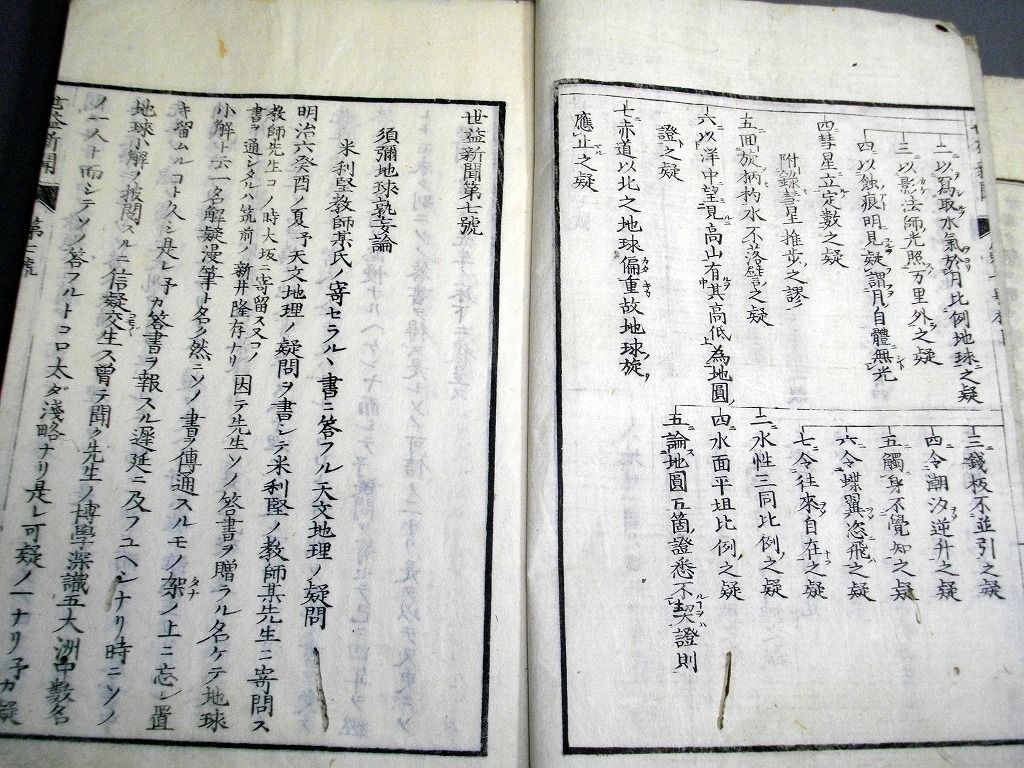 二以爲取水氣於月比例地球之疑
三以影法師光照万里外之疑
四以蝕痕明見疑謂月自體無光
四彗星立定數之疑
附錄彗星推步之謬
五面旋柄杓水不落譬之疑
六以洋中望見高山有其高低爲地圓
證之疑
七赤道以北之地球偏重故地球旋
應止之疑
三錢板不並引之疑
四令潮汐逆升之疑
五觸身不覺知之疑
六令蝶翼恣飛之疑
七令往來自在之疑
二水性三同比例之疑
四水面平坦比例之疑
五論地圓五箇證悉不契證則
世益新聞第七號
須彌地球孰妄論
米利堅教師某氏ノ寄セラルヽ書ニ答フル天文地理ノ疑問
明治六癸酉ノ夏予天文地理ノ疑問ヲ書シテ米利堅ノ教師某先生ニ寄問ス
教師先生コノ時大坂ニ寄留ススコノ
書ヲ通シタルハ筑前ノ新井隆存ナリ
因テ先生ソノ答書ヲ贈ラル名ケテ地球
小解ト云一名解疑漫筆ト名ク然ニソノ書ヲ傳通スルモノ架ノ上ニ忘レ置
キ留ムルコト久シ是レ予カ答書ヲ報スル遲延ニ及フユヘンナリ時ニソノ
地球小解ヲ披閱スルニ信疑交生ス曾テ聞ク先生ノ博學深識五大洲中數名
ノ一人ト而シテソノ答フルトコロ太ダ淺略ナリ是レ可疑ノ一ナリ予カ疑
世益新聞
第七號